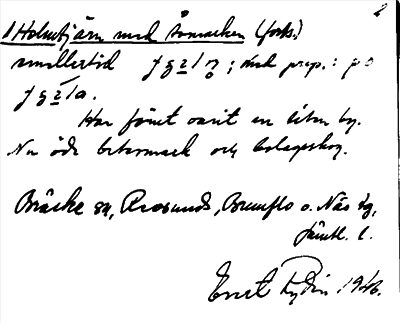 2
1 Holmtjärn med                (forts.)
smellertid          ; med prep.: på
Har förut varit en liten by.
Nu öde betesmark och bolagsskog.
Bräcke sn, Revsunds, Brunflo o. Näs tg,
Jämtl. l.
Ernst Rydin 1946.